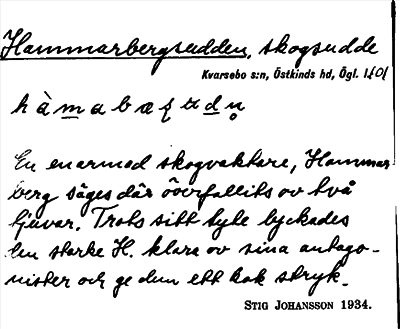 Hammarbergsudden, skogsudde
Kvarsebo s:n, Östkinds hd, Ögl. 1401
En enarmad skogvaktare, Hammar
berg säges där överfallits av två
tjuvar. Trots sitt lyte lyckades
den starke H. klara av sina antago-
nister och ge dem ett kok stryk.
STIG JOHANSSON 1934.